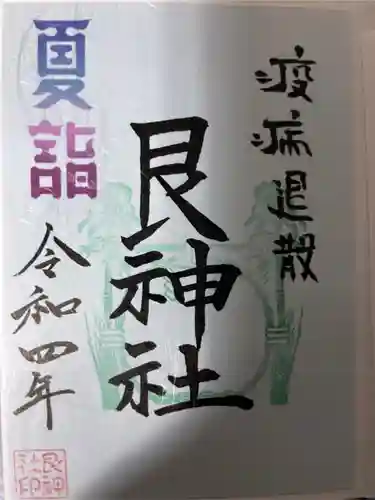 疫病退散
艮神社
夏詣
令和四年
艮神
社印